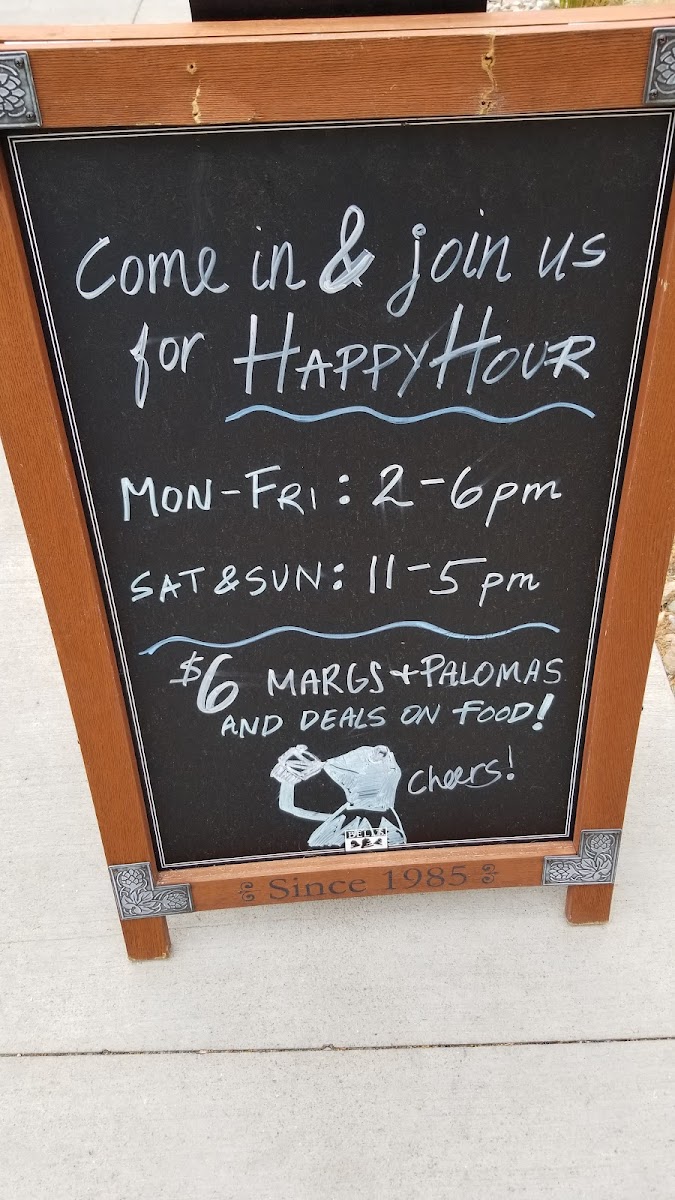 Come in & join us
for HAPPY HOUR
MON-FRI: 2-6pm
SAT & SUN: 11-5pm
$6 MARGS + PALOMAS
AND DEALS ON FOOD!
Cheers!
BELL'S
Since 1985